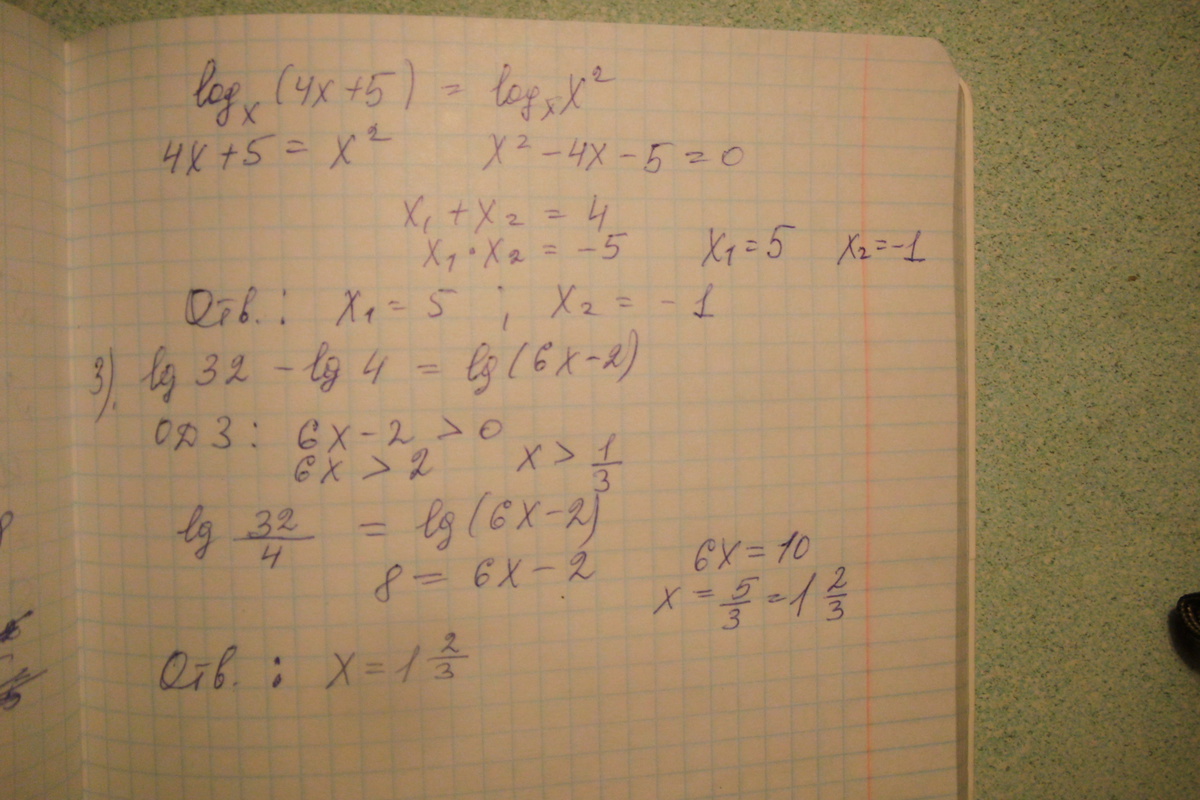 logₓ (4x+5) = logₓ x²
4x+5 = x² x² – 4x – 5 = 0
x₁ + x₂ = 4
x₁ · x₂ = –5 x₁ = 5 x₂ = –1
Отв. : x₁ = 5 ; x₂ = – 1
3). lg 32 – lg 4 = lg (6x–2)
ОДЗ : 6x – 2 > 0
6x > 2 x > 1/3
lg 32/4 = lg (6x–2)
8 = 6x – 2 6x = 10
x = 5/3 = 1 2/3
Отв. : x = 1 2/3